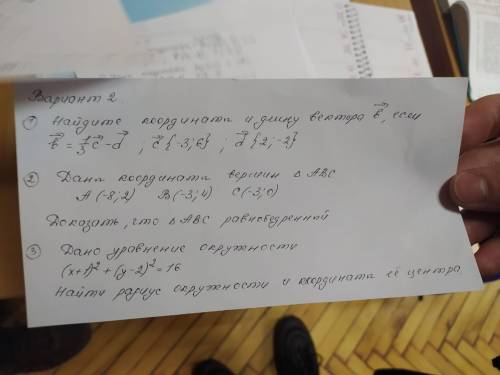 Вариант 2.
① Найдите координаты и длину вектора b⃗, если
b⃗ = 1/3 c⃗ - d⃗ ; c⃗ {-3; 6} ; d⃗ {2; -2}
② Даны координаты вершин Δ ABC
A (-8; 2) B (-3; 4) C (-3; 0)
Доказать, что Δ ABC равнобедренный
③ Дано уравнение окружности
(x+1)² + (y-2)² = 16
Найти радиус окружности и координаты её центра